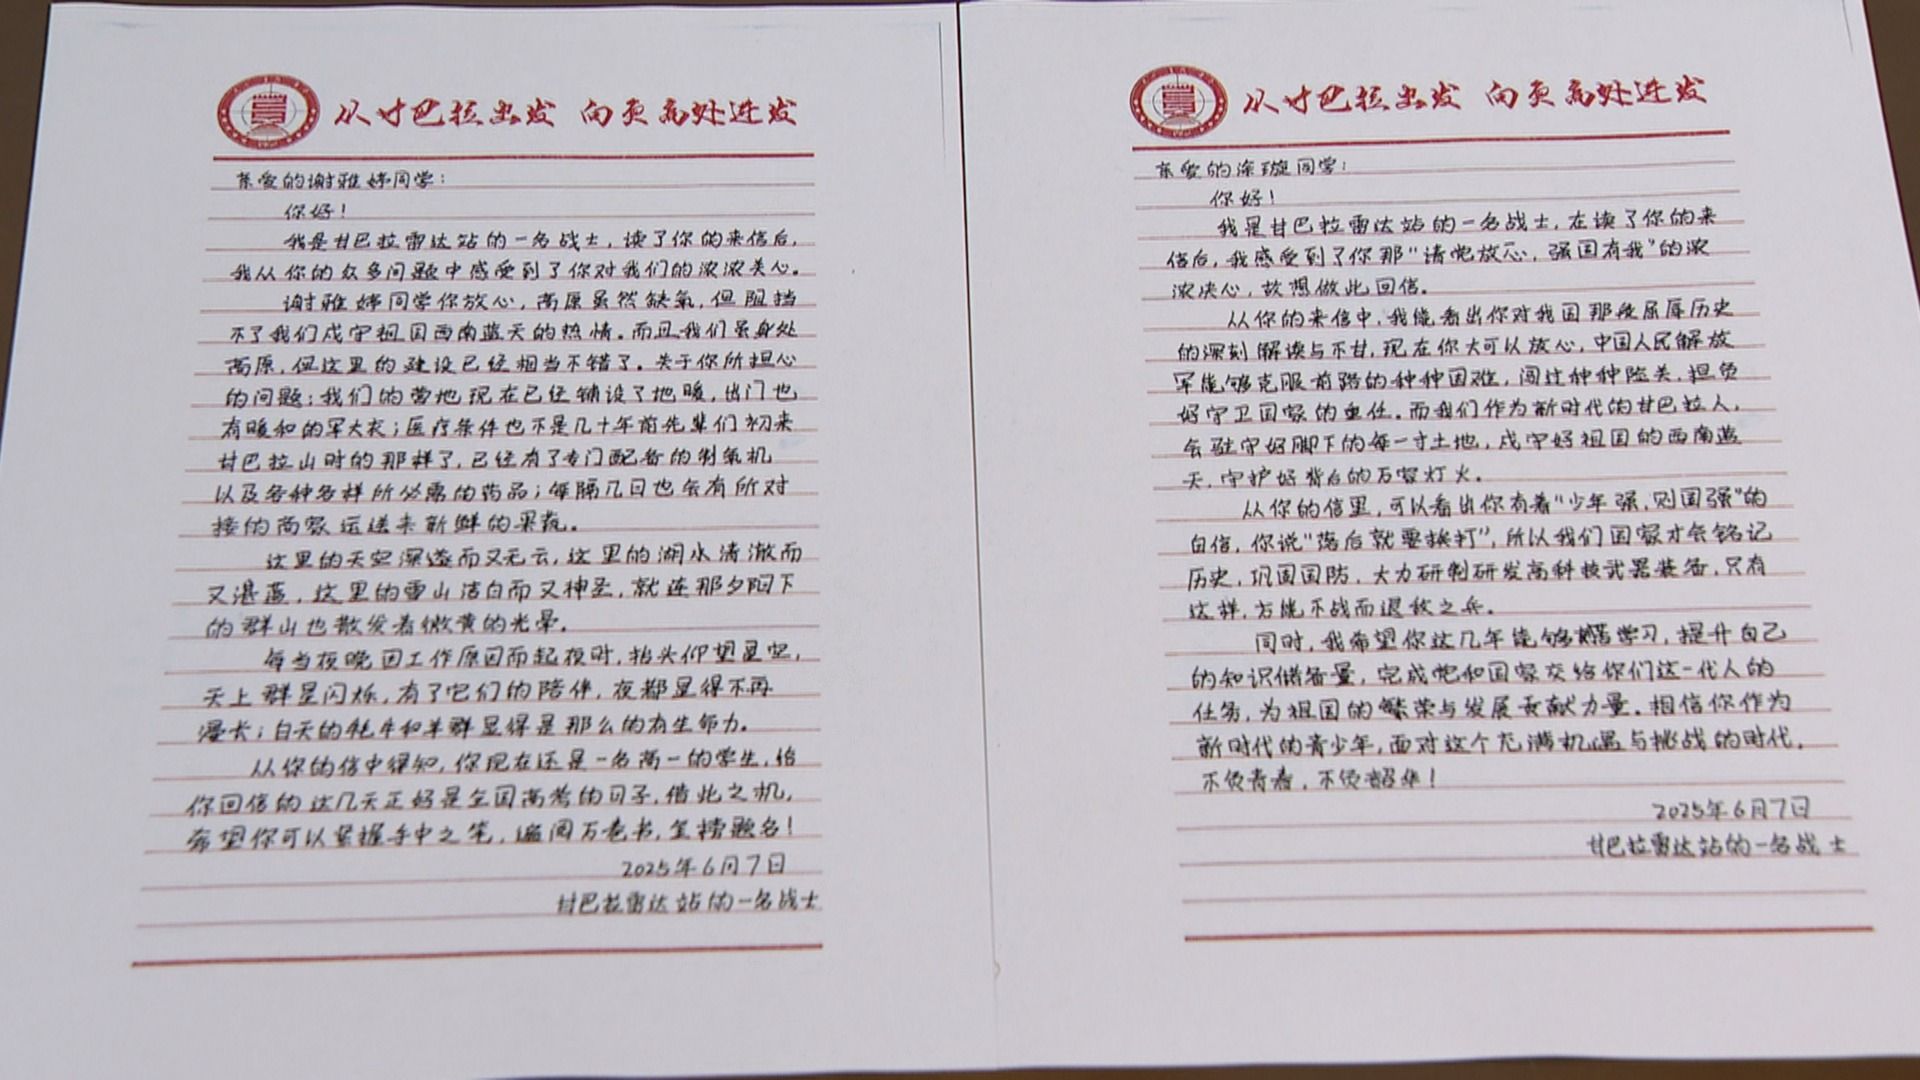 从甘巴拉出发 向更高处进发
亲爱的谢雅婷同学：
你好！
我是甘巴拉雷达站的一名战士，读了你的来信后，
我从你的众多问题中感受到了你对我们的浓浓关心。
谢雅婷同学你放心，高原虽然缺氧，但阻挡
不了我们戍守祖国西南蓝天的热情。而且我们虽身处
高原，但这里的建设已经相当不错了。关于你所担心
的问题：我们的营地现在已经铺设了地暖，出门也
有暖和的军大衣；医疗条件也不是几十年前先辈们初来
甘巴拉山时的那样了，已经有了专门配备的制氧机
以及各种各样所必需的药品；每隔几日也会有所对
接的商家运送来新鲜的果蔬。
这里的天空深邃而又无云，这里的湖水清澈而
又湛蓝，这里的雪山洁白而又神圣，就连那夕阳下
的群山也散发着微黄的光晕。
每当夜晚因工作原因而起夜时，抬头仰望星空，
天上群星闪烁，有了它们的陪伴，夜都显得不再
漫长；白天的牦牛和羊群显得是那么的有生命力。
从你的信中得知，你现在还是一名高一的学生，恰
你回信的这几天正好是全国高考的日子，借此之机，
希望你可以紧握手中之笔，遍阅万卷书，金榜题名！
2025年6月7日
甘巴拉雷达站的一名战士
从甘巴拉出发 向更高处进发
亲爱的涂璇同学：
你好！
我是甘巴拉雷达站的一名战士，在读了你的来
信后，我感受到了你那“请党放心，强国有我”的浓
浓决心，故想做此回信。
从你的来信中，我能看出你对我国那段屈辱历史
的深刻解读与不甘，现在你大可以放心，中国人民解放
军能够克服前路的种种困难，闯过种种险关，担负
好守卫国家的重任。而我们作为新时代的甘巴拉人，
会驻守好脚下的每一寸土地，戍守好祖国的西南蓝
天，守护好背后的万家灯火。
从你的信里，可以看出你有着“少年强，则国强”的
自信，你说“落后就要挨打”，所以我们国家才会铭记
历史，巩固国防，大力研制研发高科技武器装备，只有
这样，方能不战而退敌之兵。
同时，我希望你这几年能够 学习，提升自己
的知识储备量，完成党和国家交给你们这一代人的
任务，为祖国的繁荣与发展贡献力量。相信你作为
新时代的青少年，面对这个充满机遇与挑战的时代，
不负青春，不负韶华！
2025年6月7日
甘巴拉雷达站的一名战士